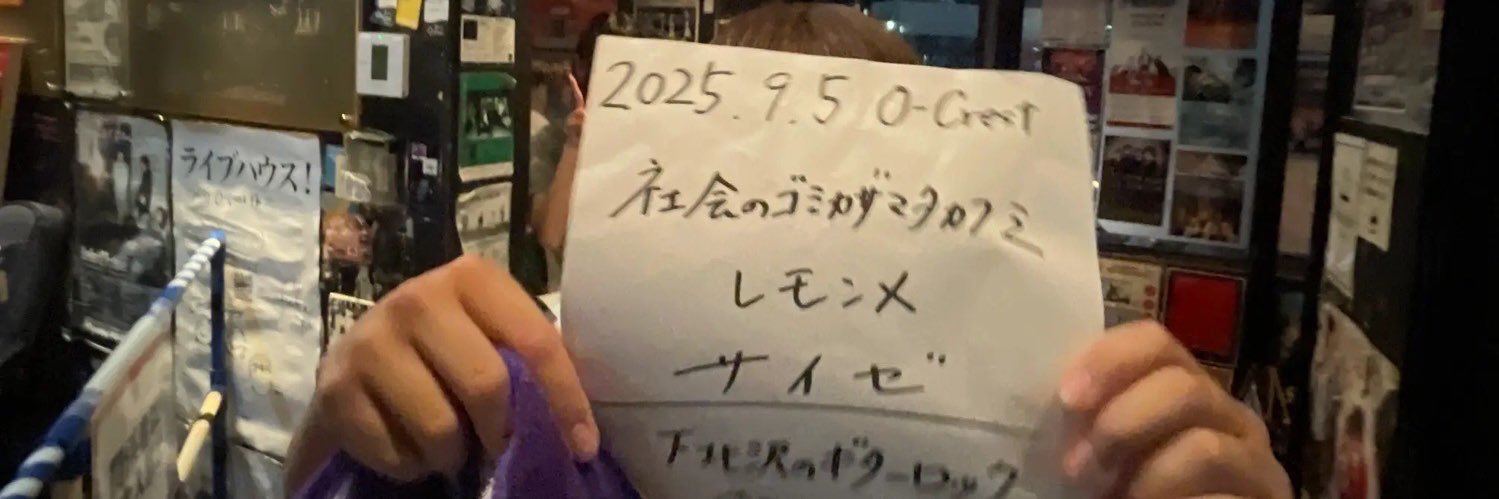 ライブハウス!
2025.9.5 O-Crest
社会のゴミカザマタカフミ
レモンメ
サイゼ
下北沢のギターロック